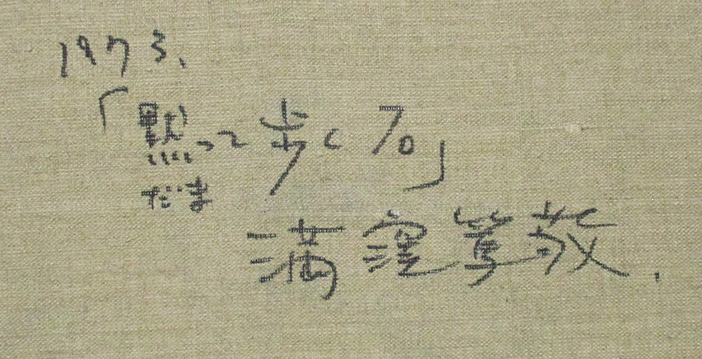 1973.
「黙って歩く70」
だま
満窪篤敬.